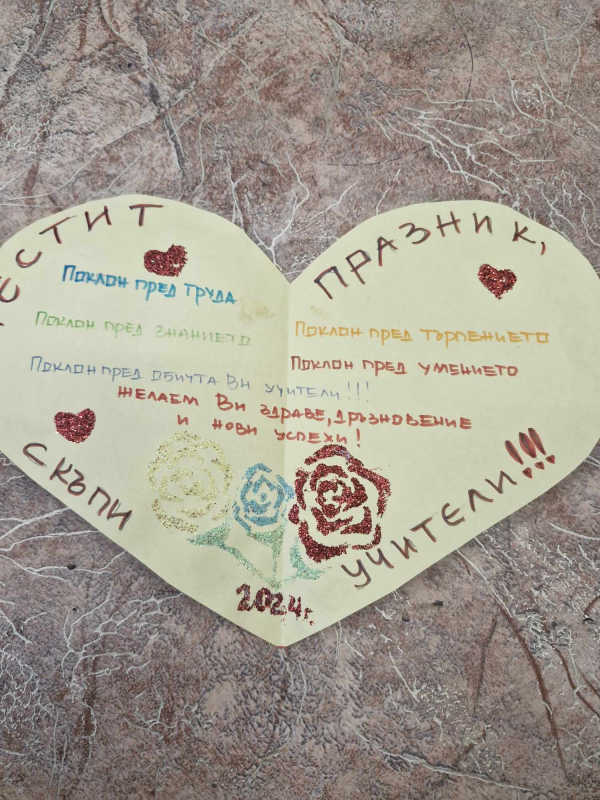 ЧЕСТИТ ПРАЗНИК,
Поклон пред труда
Поклон пред знанието
Поклон пред търпението
Поклон пред умението
Поклон пред обичта Ви учители!!!
ЖЕЛАЕМ ВИ ЗДРАВЕ, ДРЪЗНОВЕНИЕ
И НОВИ УСПЕХИ!
СКЪПИ УЧИТЕЛИ!!!
2024г.